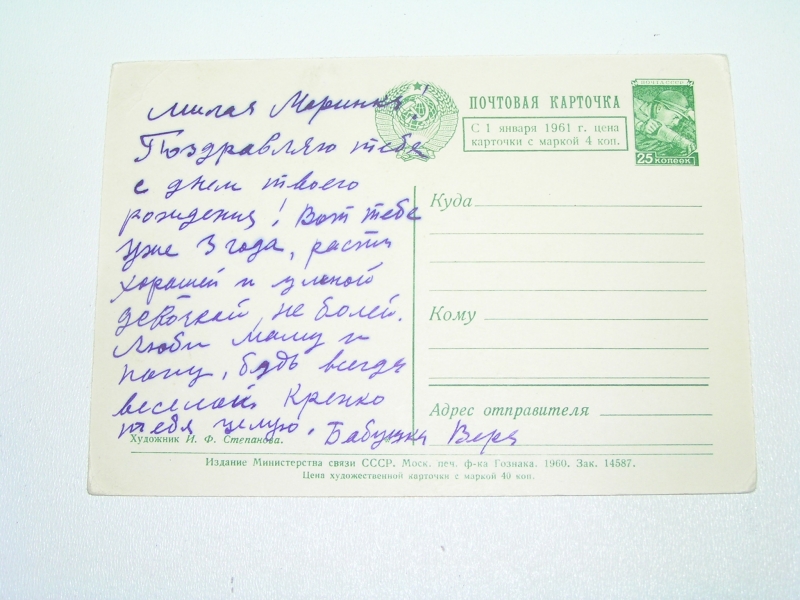 Милая Маринка!
Поздравляю тебя
с днем твоего
рождения! Вот тебе
уже 3 года, расти
хорошей и умной
девочкой, не болей.
Люби маму и
папу, будь всегда
веселой. Крепко
тебя целую. Бабушка Вера
ПОЧТОВАЯ КАРТОЧКА
С 1 января 1961 г. цена
карточки с маркой 4 коп.
ПОЧТА СССР
25 КОПЕЕК
Куда
Кому
Адрес отправителя
Художник И. Ф. Степанова.
Издание Министерства связи СССР. Моск. печ. ф-ка Гознака. 1960. Зак. 14587.
Цена художественной карточки с маркой 40 коп.